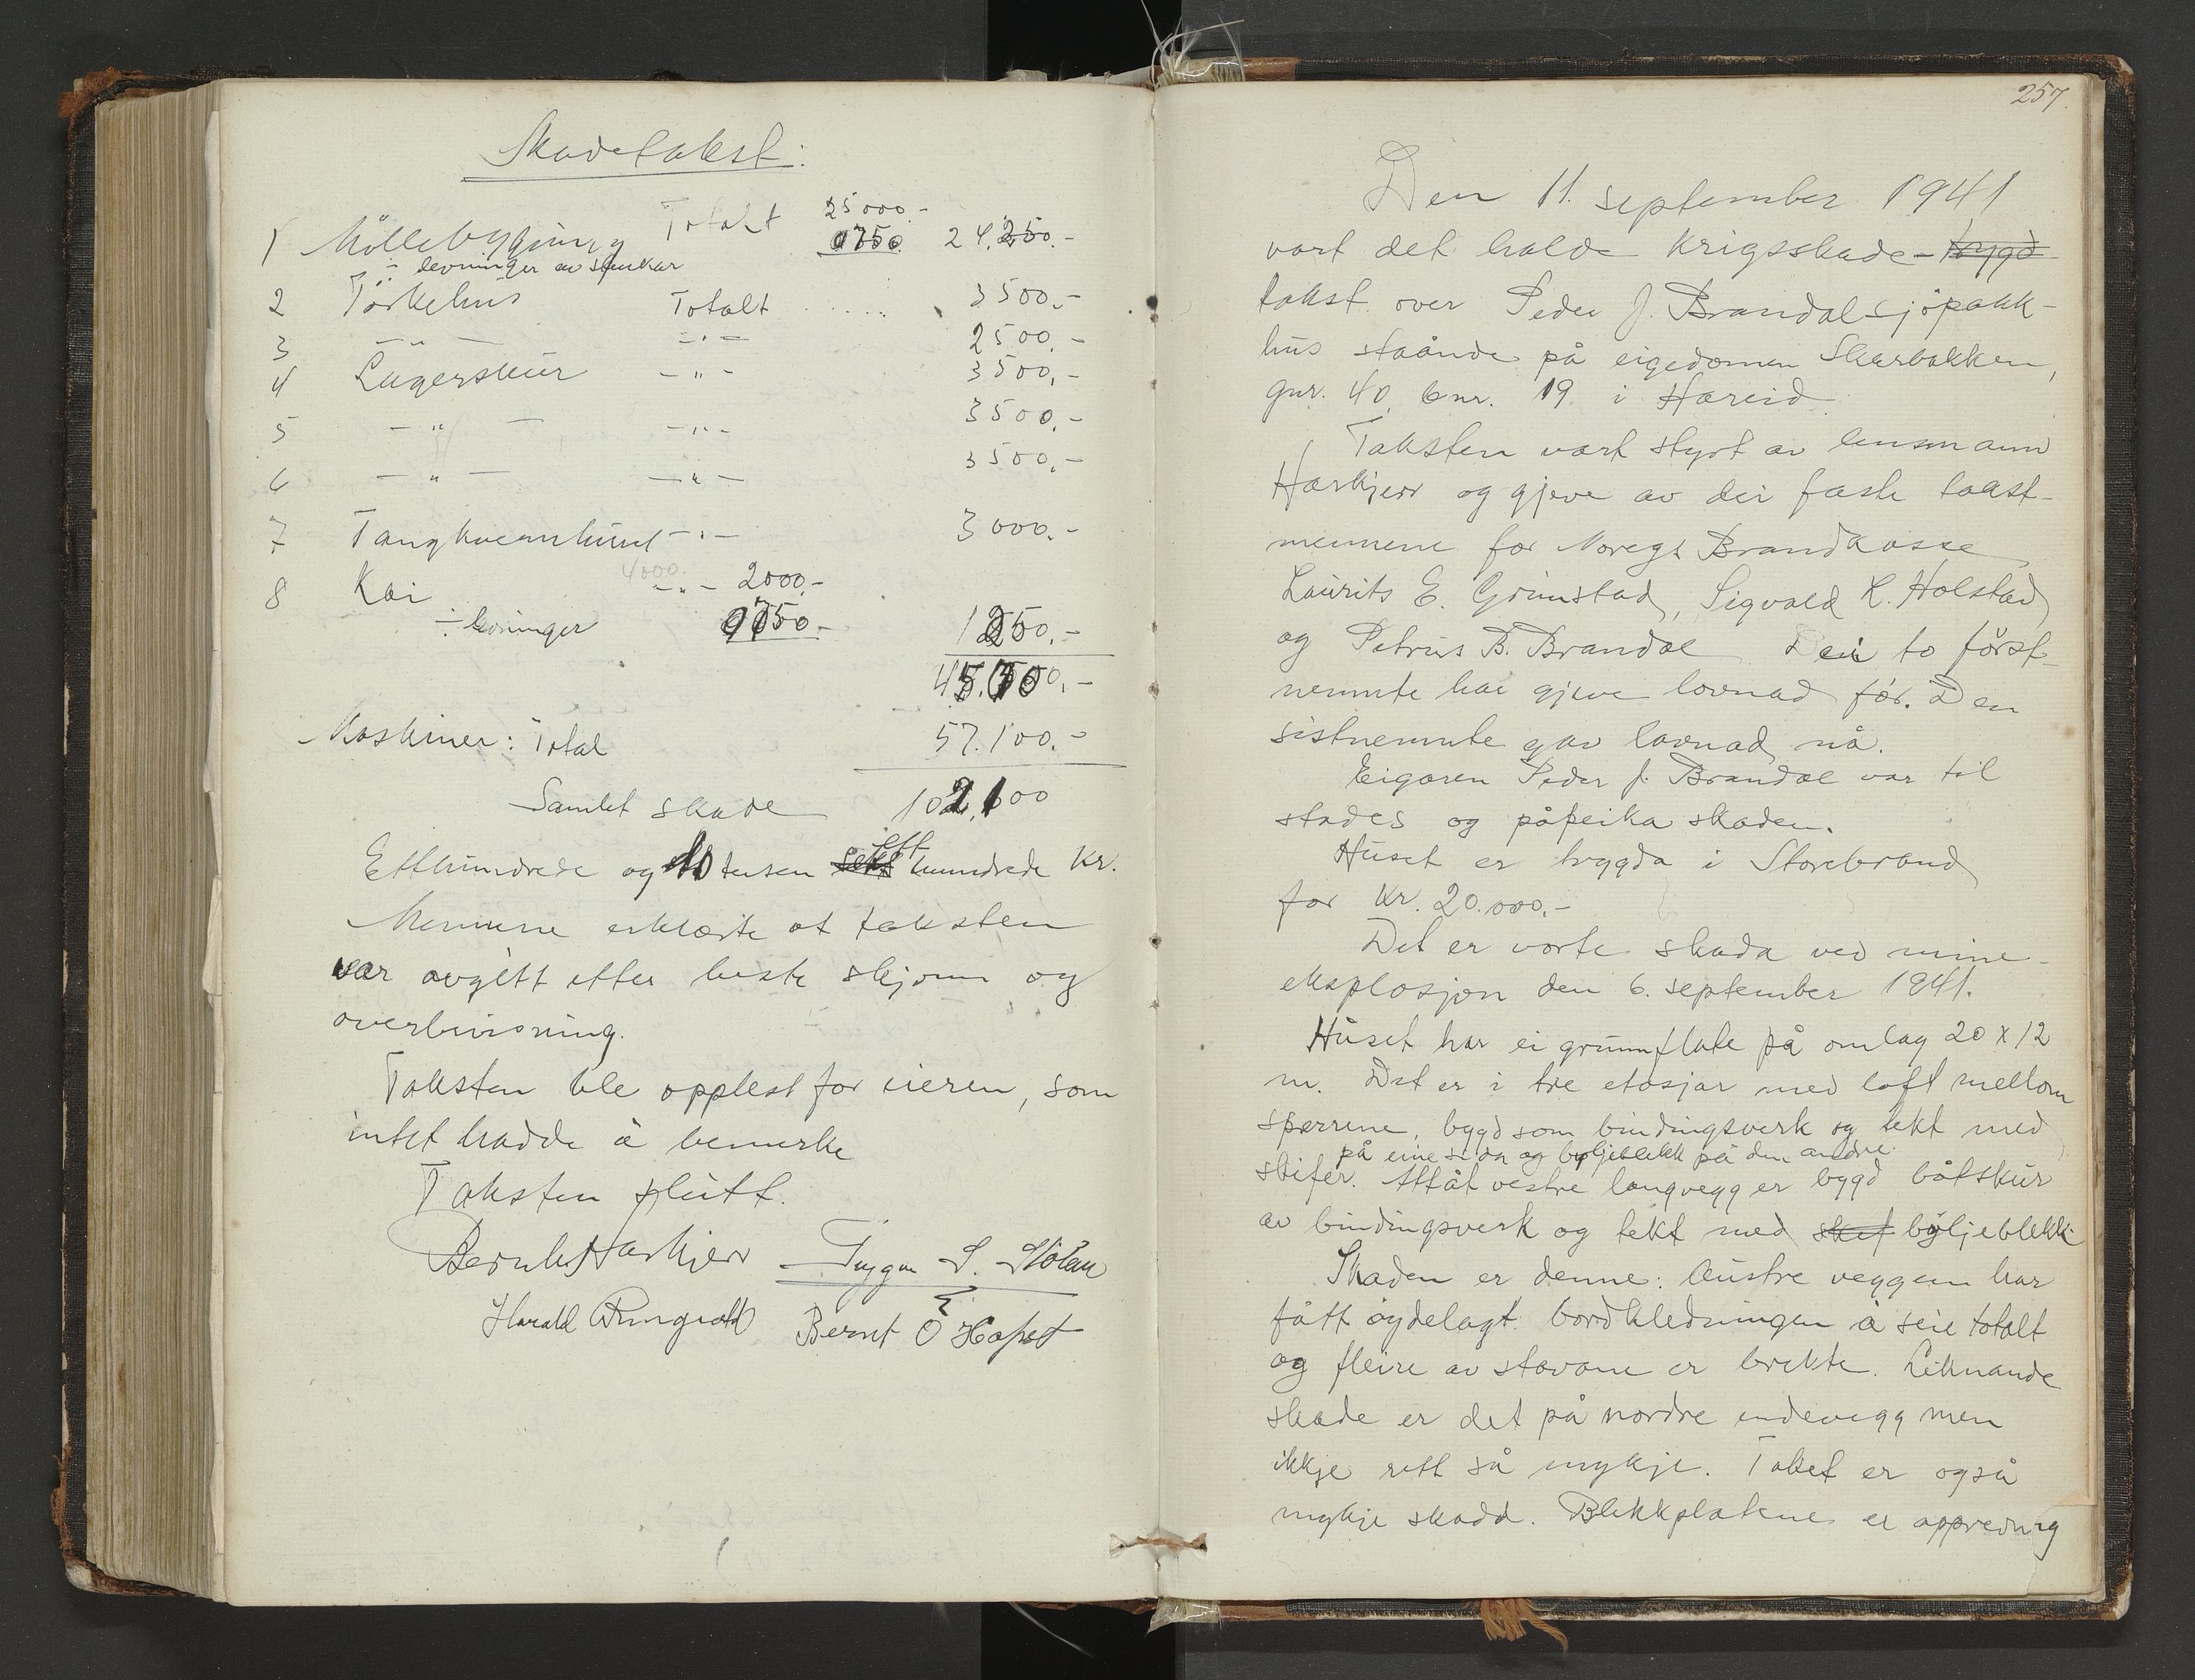 Skadetakst:
1 Möllebygning Totalt 25 000.- 24.250.-
÷ levninger av stenkar 0750
2 Törkehus Totalt ..... 3 500.-
3 - " - - " - 2 500.-
4 Lagerskur - " - 3 500,-
5 - " - - " - 3 500.-
6 - " - - " - 3 500.-
7 Tangkvernhuset - " - 3 000.-
8 Kai 4000. - " - 2000,-
÷ levninger 0750.- 1250.-
45.000.-
Maskiner: Total 57.100.-
Samlet skade 102,100
Etthundrede og to tusen ett hundrede Kr.
Mennene erklærte at taksten
var avgitt etter beste skjönn og
overbevisning.
Taksten ble opplest for eieren, som
intet hadde å bemerke
Taksten slutt.
Bernh Harkjerr Trygve S. Stölan
Harald Ringstad Bernt O Hapst
257.
Den 11. september 1941
vart det halde Krigsskade-bygd
takst over Peder J. Brandal sjöpakk-
hus ståande på eigedomen Skarbakken,
gnr. 40 bnr. 19 i Hareid.
Taksten vart styrt av lensmann
Harkjerr og gjeve av dei faste takst-
mennene for Noregs Brandkasse
Laurits E. Grimstad, Sigvald K. Holstad
og Petrus B. Brandal Dei to först-
nemnte har gjeve lovnad för. Den
sistnemnte gav lovnad nå.
Eigaren Peder J. Brandal var til
stades og påpeika skaden.
Huset er trygda i Storebrand
for Kr. 20.000.-
Det er vorte skada ved mine-
eksplosjon den 6. september 1941.
Huset har ei grunnflate på omlag 20 x 12
m. Det er i tre etasjar med loft mellom
sperrene, bygd som bindingsverk og tekt med
på eine sida og bylgjeblekk på den andre.
skifer. Attåt vestre langvegg er bygd båtskur
av bindingsverk og tekt med skif böljeblekk
Skaden er denne: Austre veggen har
fått öydelagt bordkledningen å seie totalt
og fleire av stavane er brekte. Liknande
skade er det på nordre endevegg men
ikkje rett så mykje. Taket er også
mykje skadd. Blekkplatene er oppredning